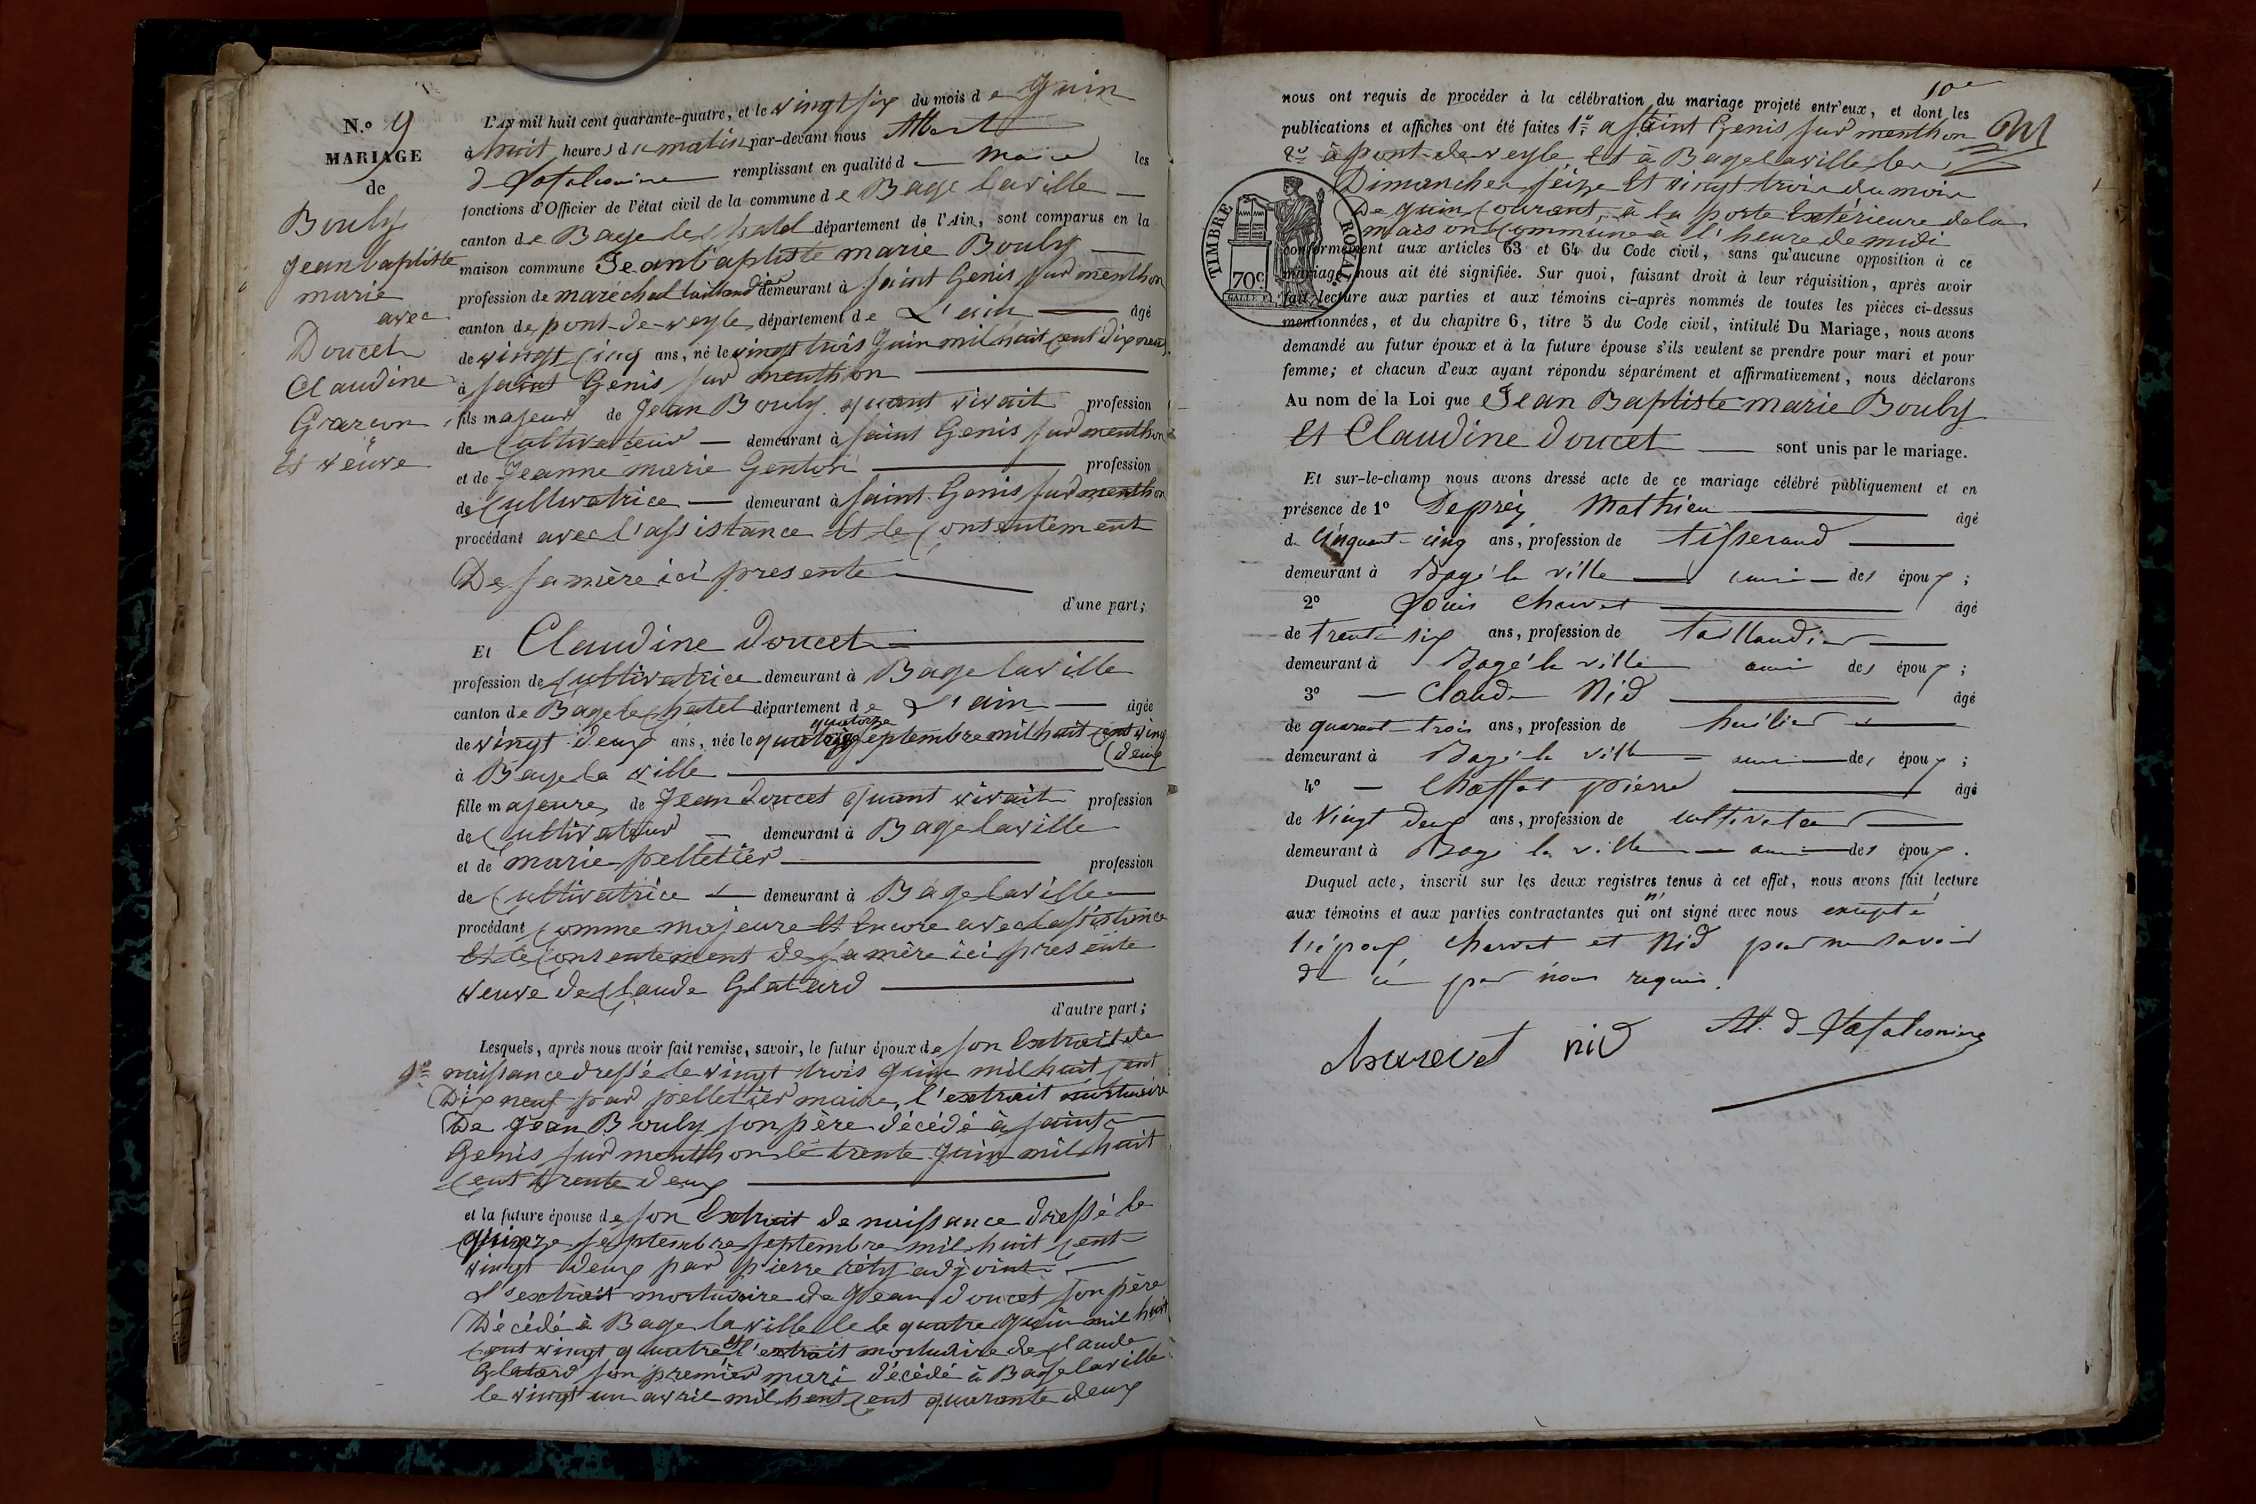 N.º 9
MARIAGE
de
Bouly
Jean baptiste
marie
avec
Doucet
Claudine
Garcon
Et veuve
L'an mil huit cent quarante-quatre, et le vingt six du mois de Juin
à huit heures du matin par-devant nous Albert
d remplissant en qualité de maire les
fonctions d'Officier de l'état civil de la commune de Bage laville
canton de Bage le chatel département de l'Ain, sont comparus en la
maison commune Jean baptiste marie Bouly
profession de maréchal taillandier demeurant à saint Genis sur menthon
canton de pont-de-veyle département de L'ain âgé
de vingt cinq ans, né le vingt trois Juin mil huit cent dix neuf
à saint Genis sur menthon
fils majeur de Jean Bouly quant vivait profession
de cultivateur demeurant à saint Genis sur menthon
et de Jeanne marie Genton profession
de cultivatrice demeurant à saint Genis sur menthon
procédant avec l'assistance et le consentement
De sa mère ici presente
d'une part;
Et Claudine Doucet
profession de cultivatrice demeurant à Bage laville
canton de Bage le chatel département de L'ain âgée
quatorze
de vingt deux ans, née le septembre mil huit cent vingt
deux
à Bage la ville
fille majeure de Jean doucet quant vivait profession
de cultivateur demeurant à Bage laville
et de marie pelletier profession
de cultivatrice demeurant à Bage laville
procédant comme majeure et encore avec l'assistance
et le consentement de sa mère ici presente
veuve de claude Glatard
d'autre part;
Lesquels, après nous avoir fait remise, savoir, le futur époux de son Extrait de
naissance dressé le vingt trois Juin mil huit cent
Dix neuf par pelletier maire, l'extrait mortuaire
De Jean Bouly son père décédé à saint
Genis sur menthon le trente Juin mil huit
cent trente deux
et la future épouse de son Extrait de naissance dressé le
quinze septembre septembre mil huit cent
vingt deux par pierre réty adjoint
L'extrait mortuaire de Jean doucet son père
Décédé à Bage laville le le quatre Juin mil huit
cent vingt quatre et l'extrait mortuaire de claude
Glatard son premier mari décédé à Bage laville
le vingt un avril mil huit cent quarante deux
10e
nous ont requis de procéder à la célébration du mariage projeté entr'eux, et dont les
publications et affiches ont été faites 1º a saint Genis sur menthon
2º à pont-de-veyle et à Bage laville les
Dimanches seize et vingt trois du mois
De Juin courant, à la porte Extérieure de la
maison commune à l'heure de midi
conformément aux articles 63 et 64 du Code civil, sans qu'aucune opposition à ce
mariage nous ait été signifiée. Sur quoi, faisant droit à leur réquisition, après avoir
fait lecture aux parties et aux témoins ci-après nommés de toutes les pièces ci-dessus
mentionnées, et du chapitre 6, titre 5 du Code civil, intitulé Du Mariage, nous avons
demandé au futur époux et à la future épouse s'ils veulent se prendre pour mari et pour
femme; et chacun d'eux ayant répondu séparément et affirmativement, nous déclarons
Au nom de la Loi que Jean Baptiste marie Bouly
Et Claudine Doucet sont unis par le mariage.
TIMBRE ROYAL
70c
Et sur-le-champ nous avons dressé acte de ce mariage célébré publiquement et en
présence de 1º Mathieu âgé
de cinquante cinq ans, profession de tisserand
demeurant à Bagé la ville ami des époux;
2º Louis Charvet âgé
de trente six ans, profession de taillandier
demeurant à Bagé la ville ami des époux;
3º Claude Nid âgé
de quarante trois ans, profession de huilier
demeurant à Bagé la ville ami des époux;
4º Chaffat pierre âgé
de Vingt deux ans, profession de cultivateur
demeurant à Bagé la ville ami des époux.
Duquel acte, inscrit sur les deux registres tenus à cet effet, nous avons fait lecture
aux témoins et aux parties contractantes qui n'ont signé avec nous excepté
charvet et Nid pour ne savoir
de ce par nous requis.
charvet nid